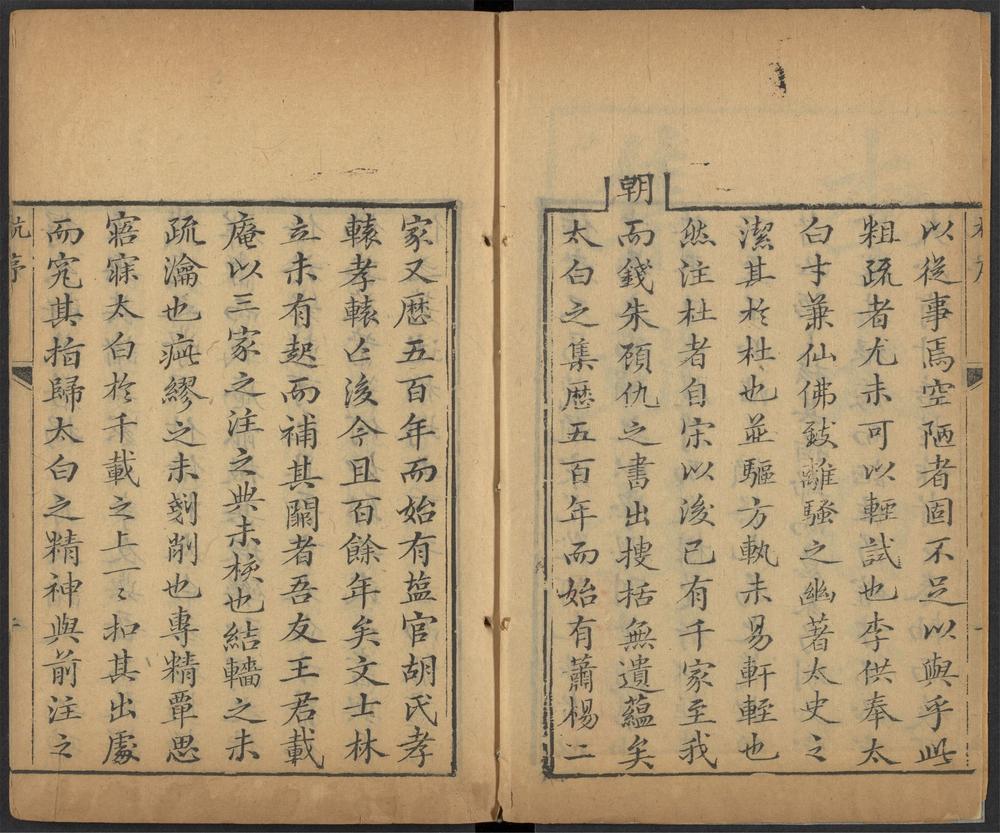 以從事焉空陋者固不足以與乎此
粗疏者尤未可以輕試也李供奉太
白才兼仙佛敍離騷之幽著太史之
潔其於杜也並驅方軌未易軒輊也
然注杜者自宋以後已有千家至我
朝
而錢朱顧仇之書出搜括無遺蘊矣
太白之集歷五百年而始有蕭楊二
家又歷五百年而始有塩官胡氏孝
轅孝轅亾後今且百餘年矣文士林
立未有起而補其闕者吾友王君載
庵以三家之注之典未核也結轖之未
疏瀹也疵繆之未剗削也專精覃思
寤寐太白於千載之上一〻扣其出處
而究其指歸太白之精神與前注之
杭序